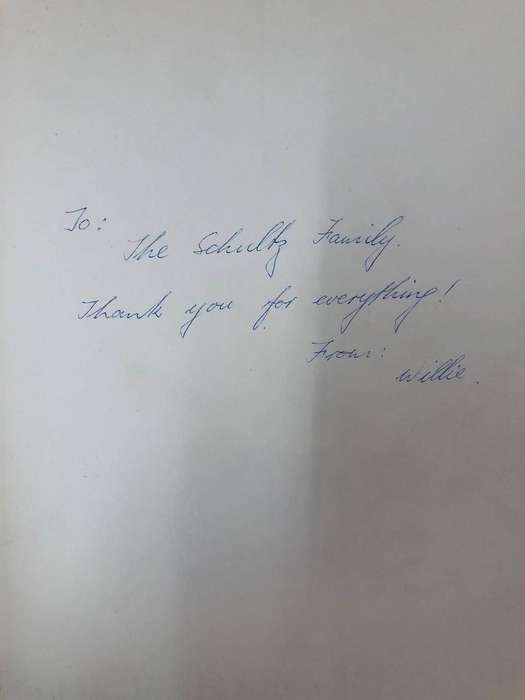 To:
The Schultz Family.
Thank you for everything!
From:
Willie.